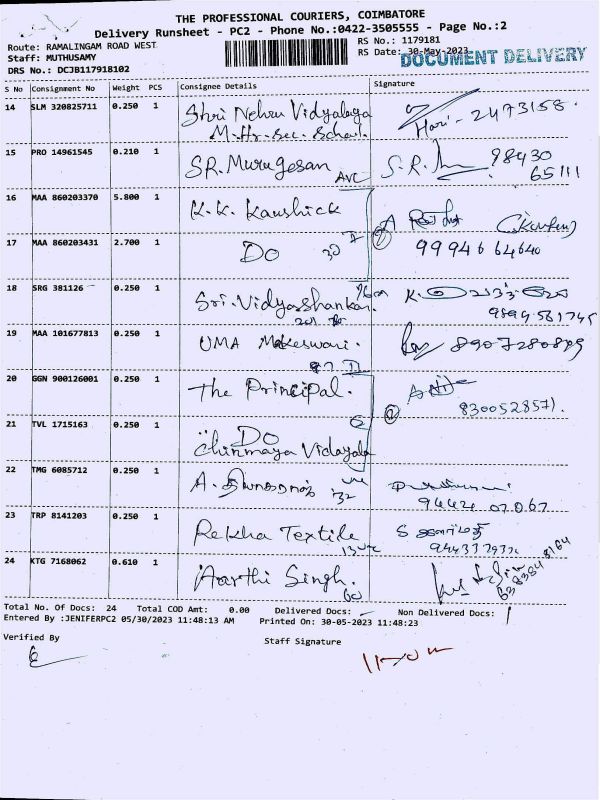 THE PROFESSIONAL COURIERS, COIMBATORE
Delivery Runsheet - PC2 - Phone No.:0422-3505555 - Page No.:2
Route: RAMALINGAM ROAD WEST
RS No.: 1179181
Staff: MUTHUSAMY
RS Date: 30-May-2023
DOCUMENT DELIVERY
DRS No.: DCJB117918102
S No Consignment No Weight PCS Consignee Details Signature
14 SLM 320825711 0.250 1 Shri Nehru Vidyalaya
M.Hr.Sec. School. Hari - 2473158.
15 PRO 14961545 0.210 1 SR. Murugesan AVC S.R. 98430
65111
16 MAA 860203370 5.800 1 K.K. Kaushick
17 MAA 860203431 2.700 1 Do 30 99946 64640
18 SRG 381126 0.250 1 Sri. Vidyashankar K.
9894581745
19 MAA 101677813 0.250 1 UMA Makeswari. 8907280889
20 GGN 900126001 0.250 1 The Principal.
8300528571.
21 TVL 1715163 0.250 1 Do
Chinmaya Vidayala
22 TMG 6085712 0.250 1 A. 32
94424 07067
23 TRP 8141203 0.250 1 Rekha Textile S
24 KTG 7168062 0.610 1 Aarthi Singh. 60 6383848164
Total No. Of Docs: 24 Total COD Amt: 0.00 Delivered Docs: Non Delivered Docs:
Entered By :JENIFERPC2 05/30/2023 11:48:13 AM Printed On: 30-05-2023 11:48:23
Verified By Staff Signature